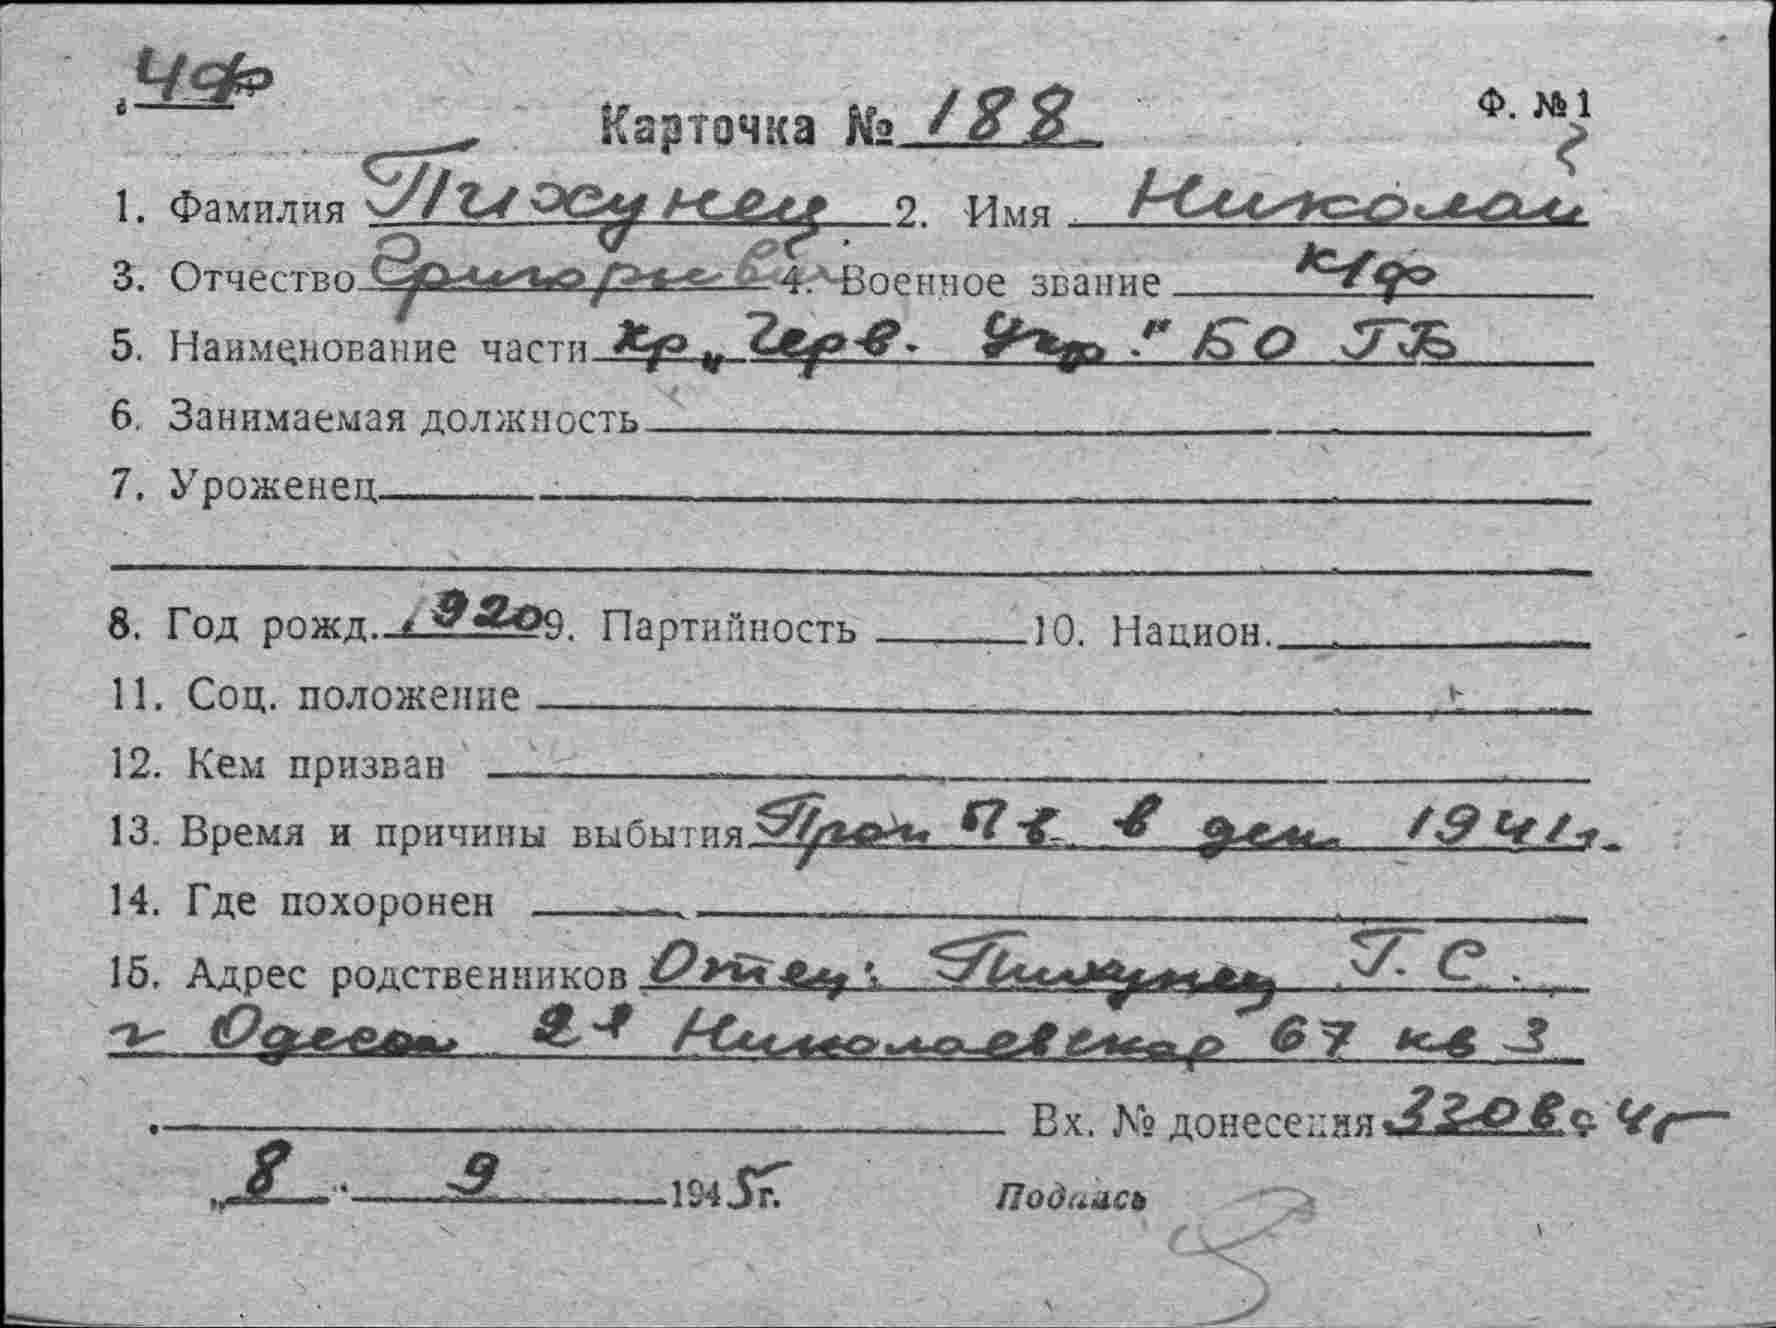 ЧФ
Карточка № 188
Ф. №1
1. Фамилия Пихунец 2. Имя Николай
3. Отчество Григорьев 4. Военное звание К/Ф
5. Наименование части Кр „Черв. Укр." БО ГБ
6. Занимаемая должность
7. Уроженец
8. Год рожд. 1920 9. Партийность 10. Национ.
11. Соц. положение
12. Кем призван
13. Время и причины выбытия Проп в дек. 1941г.
14. Где похоронен
15. Адрес родственников Отец: Пихунец Г. С.
г Одесса 2я Николаевская 67 кв 3
Вх. № донесения 3208с 45
„8" 9 1945г. Подпись